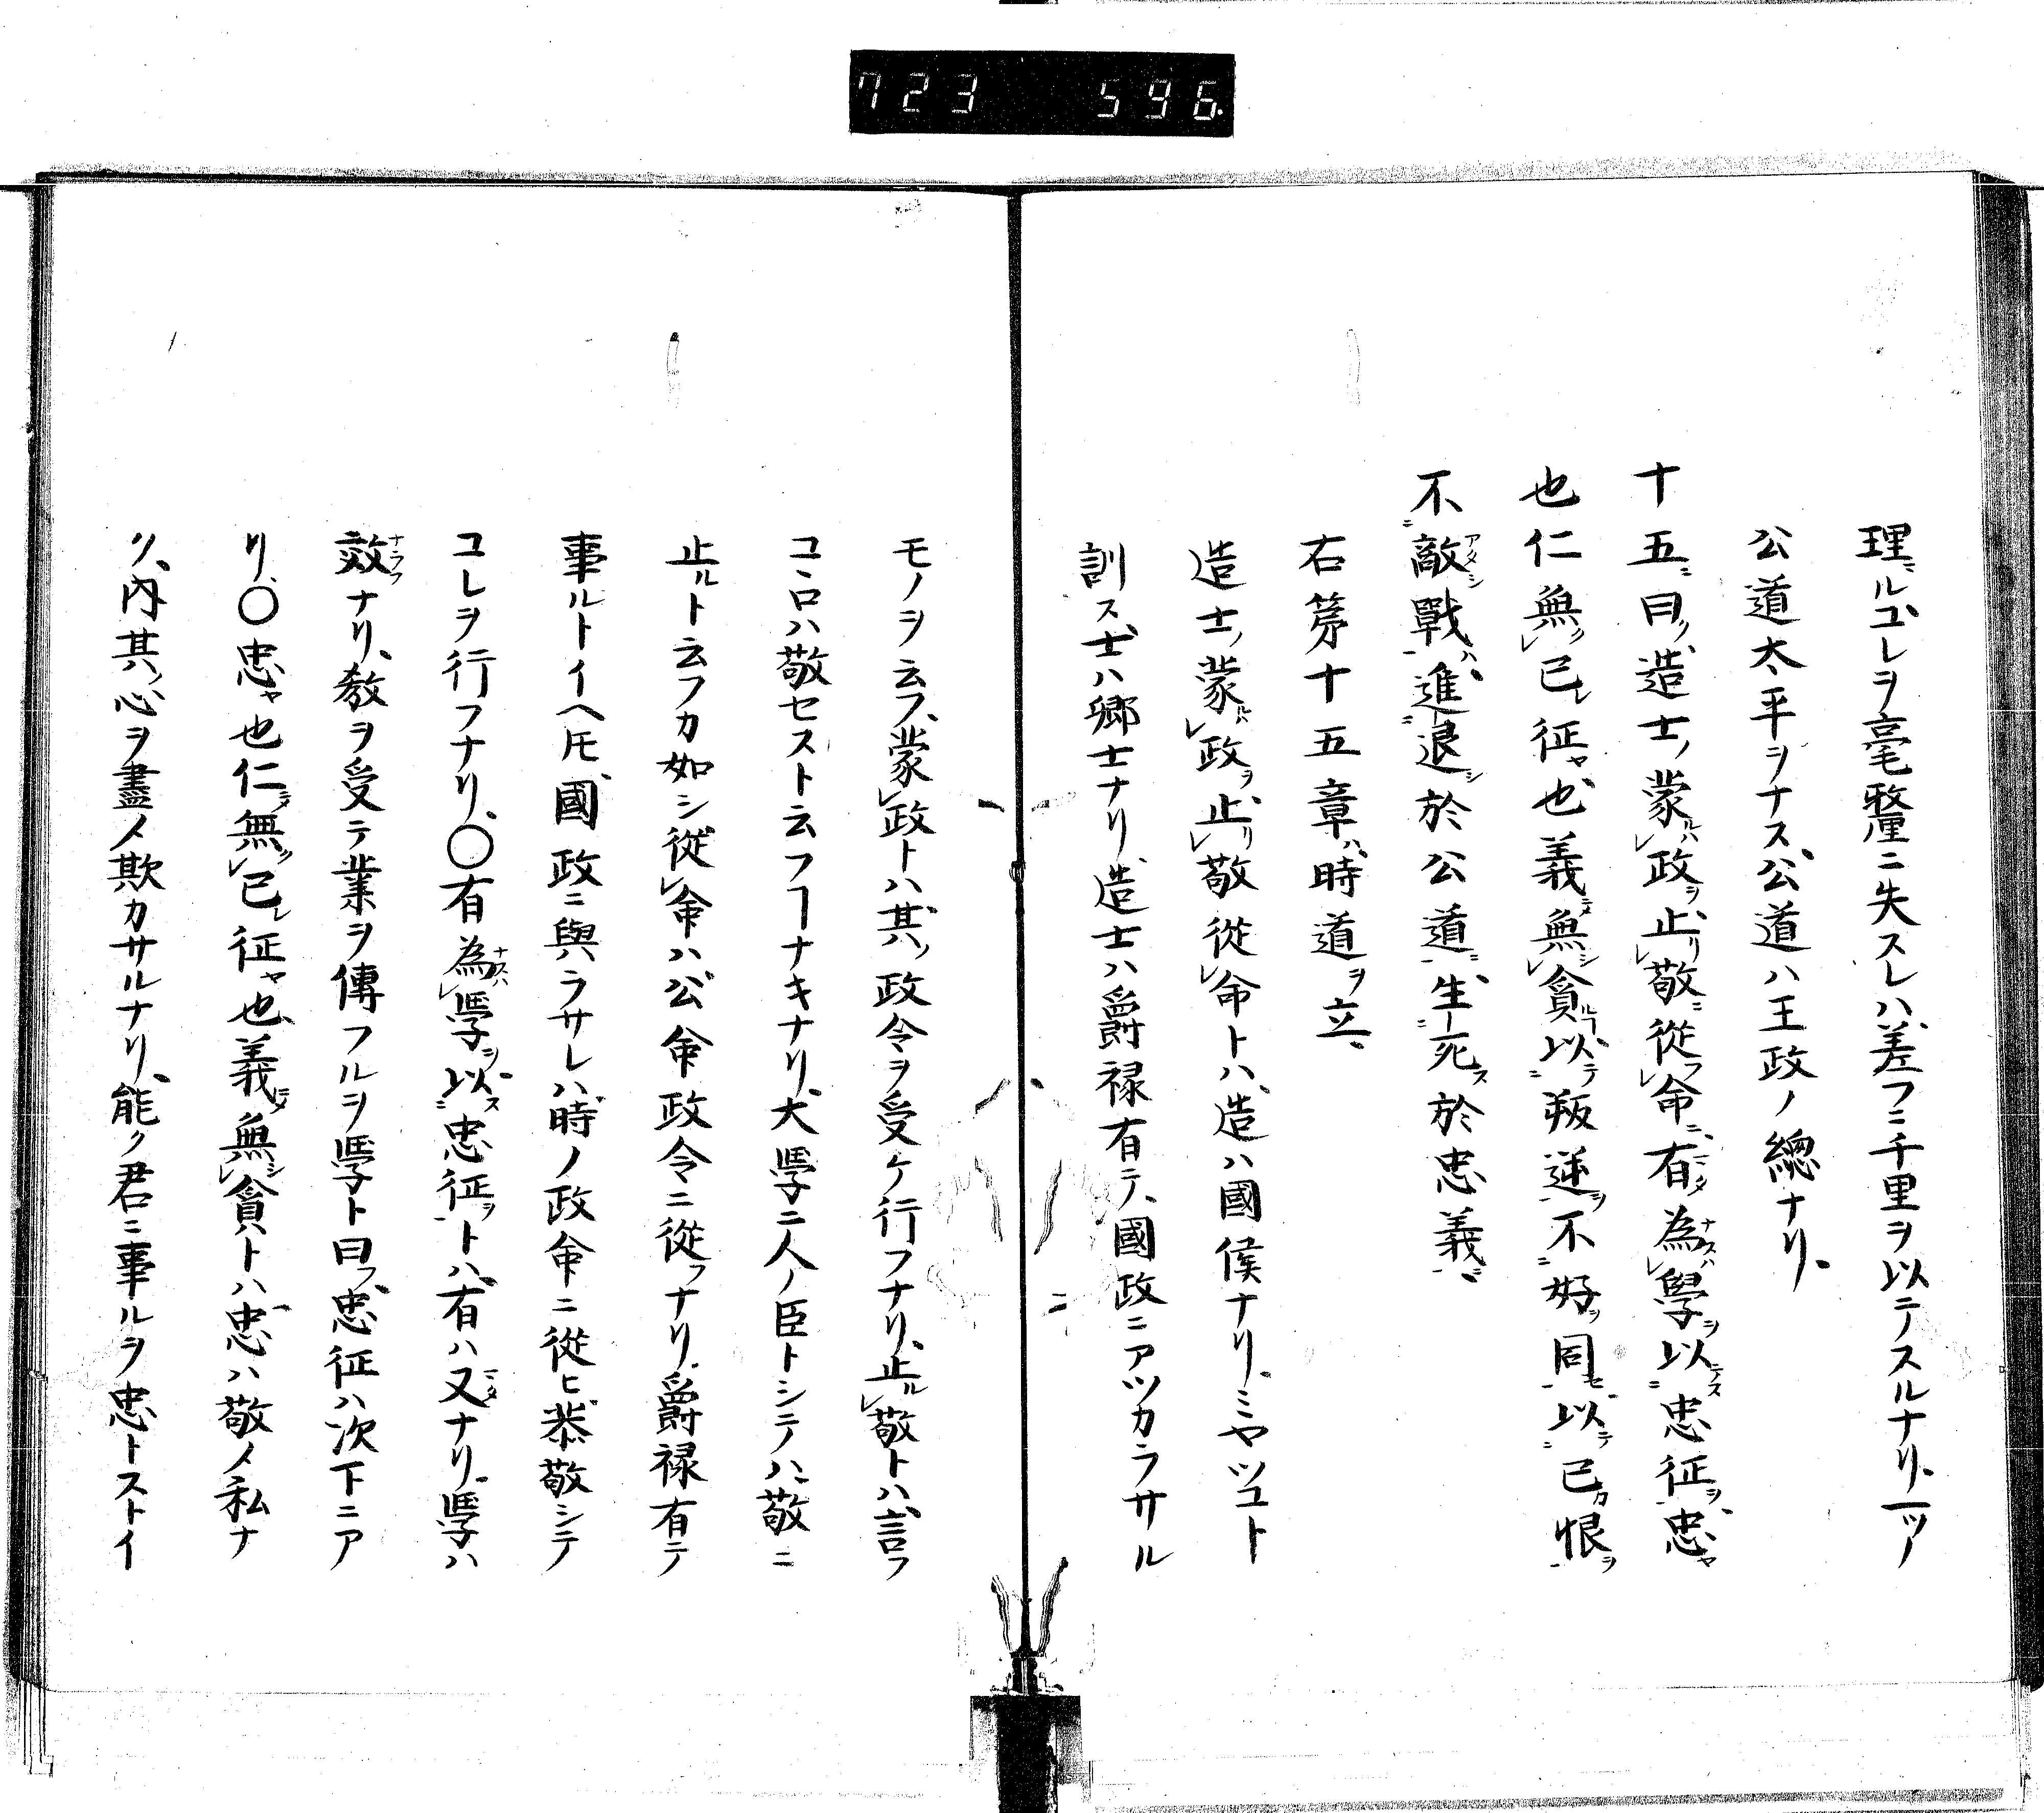 723 596.
理ニルコレヲ毫釐ニ失スレハ差フニ千里ヲ以テスルナリ一ツノ
公道太平ヲナス公道ハ王政ノ總ナリ
十五ニ曰ク造士ノ蒙ルハレ政ヲ止リレ敬ニ從フレ命ニ有マタ為ナスハレ學ヲ以テスニ忠征ヲ一忠ヤ
也仁無クレ己レ征ヤ也義ニテ無シレ貪ルヿ以テニ叛逆ヲ一不ニ好ヲ同セ一以テニ己カ恨ヲ一
不ニ敵アタシ戰ハ一進ニ退シ於公道ニ一生ニ死ス於忠義ニ一
右第十五章ハ時道ヲ立ツ
造士ノ蒙ルハレ政ヲ止リレ敬從レ命トハ造ハ國侯ナリミヤツコト
訓ス士ハ郷士ナリ造士ハ爵禄有テ國政ニアツカラサル
モノヲ云フ蒙レ政トハ其ノ政令ヲ受ケ行フナリ止ルレ敬トハ言フ
コヽロハ敬セスト云フヿナキナリ大學ニ人ノ臣トシテハ敬ニ
止ルト云フカ如シ從レ命ハ公命政令ニ從フナリ爵禄有テ
事ルトイヘ𪜈國政ニ與ラサレハ時ノ政命ニ從ヒ恭敬シテ
コレヲ行フナリ〇有為ナスハレ學ヲ以スニ忠征ヲ一トハ有ハ又マタナリ學ハ
效ナラフナリ教ヲ受テ業ヲ傳フルヲ學ト曰フ忠征ハ次下ニア
リ〇忠ヤ也仁ニテ無クレ己レ征ヤ也義ニテ無シレ貪トハ忠ハ敬ノ私ナ
ク内其ノ心ヲ盡メ欺カサルナリ能ク君ニ事ルヲ忠トストイ